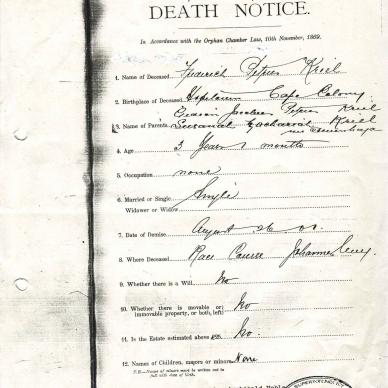 DEATH NOTICE.
In Accordance with the Orphan Chamber Law, 10th November, 1869.
1. Name of Deceased Frederich Petrus Kriel
2. Birthplace of Deceased Cape Colony
Petrus Kriel
3. Name of Parents Susanna Zacharia Kriel
4. Age 3 Years months
5. Occupation none
6. Married or Single Single
Widower or Widow
7. Date of Demise August 26
8. Where Deceased Race Course Johannesburg
9. Whether there is a Will No
10. Whether there is movable or
immovable property, or both, left No
11. Is the Estate estimated above No.
12. Names of Children, majors or minors None
N.B.—Names of minors must be written out in
full with date of birth.